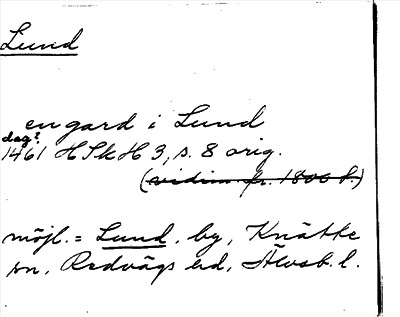 Lund
en gard i Lund
dag?
1461 HSkH 3, s. 8 orig.
(vidim. fr. 1800 t.)
möjl. = Lund, by, Knätte
sn, Redvägs hd, Älvsb. l.